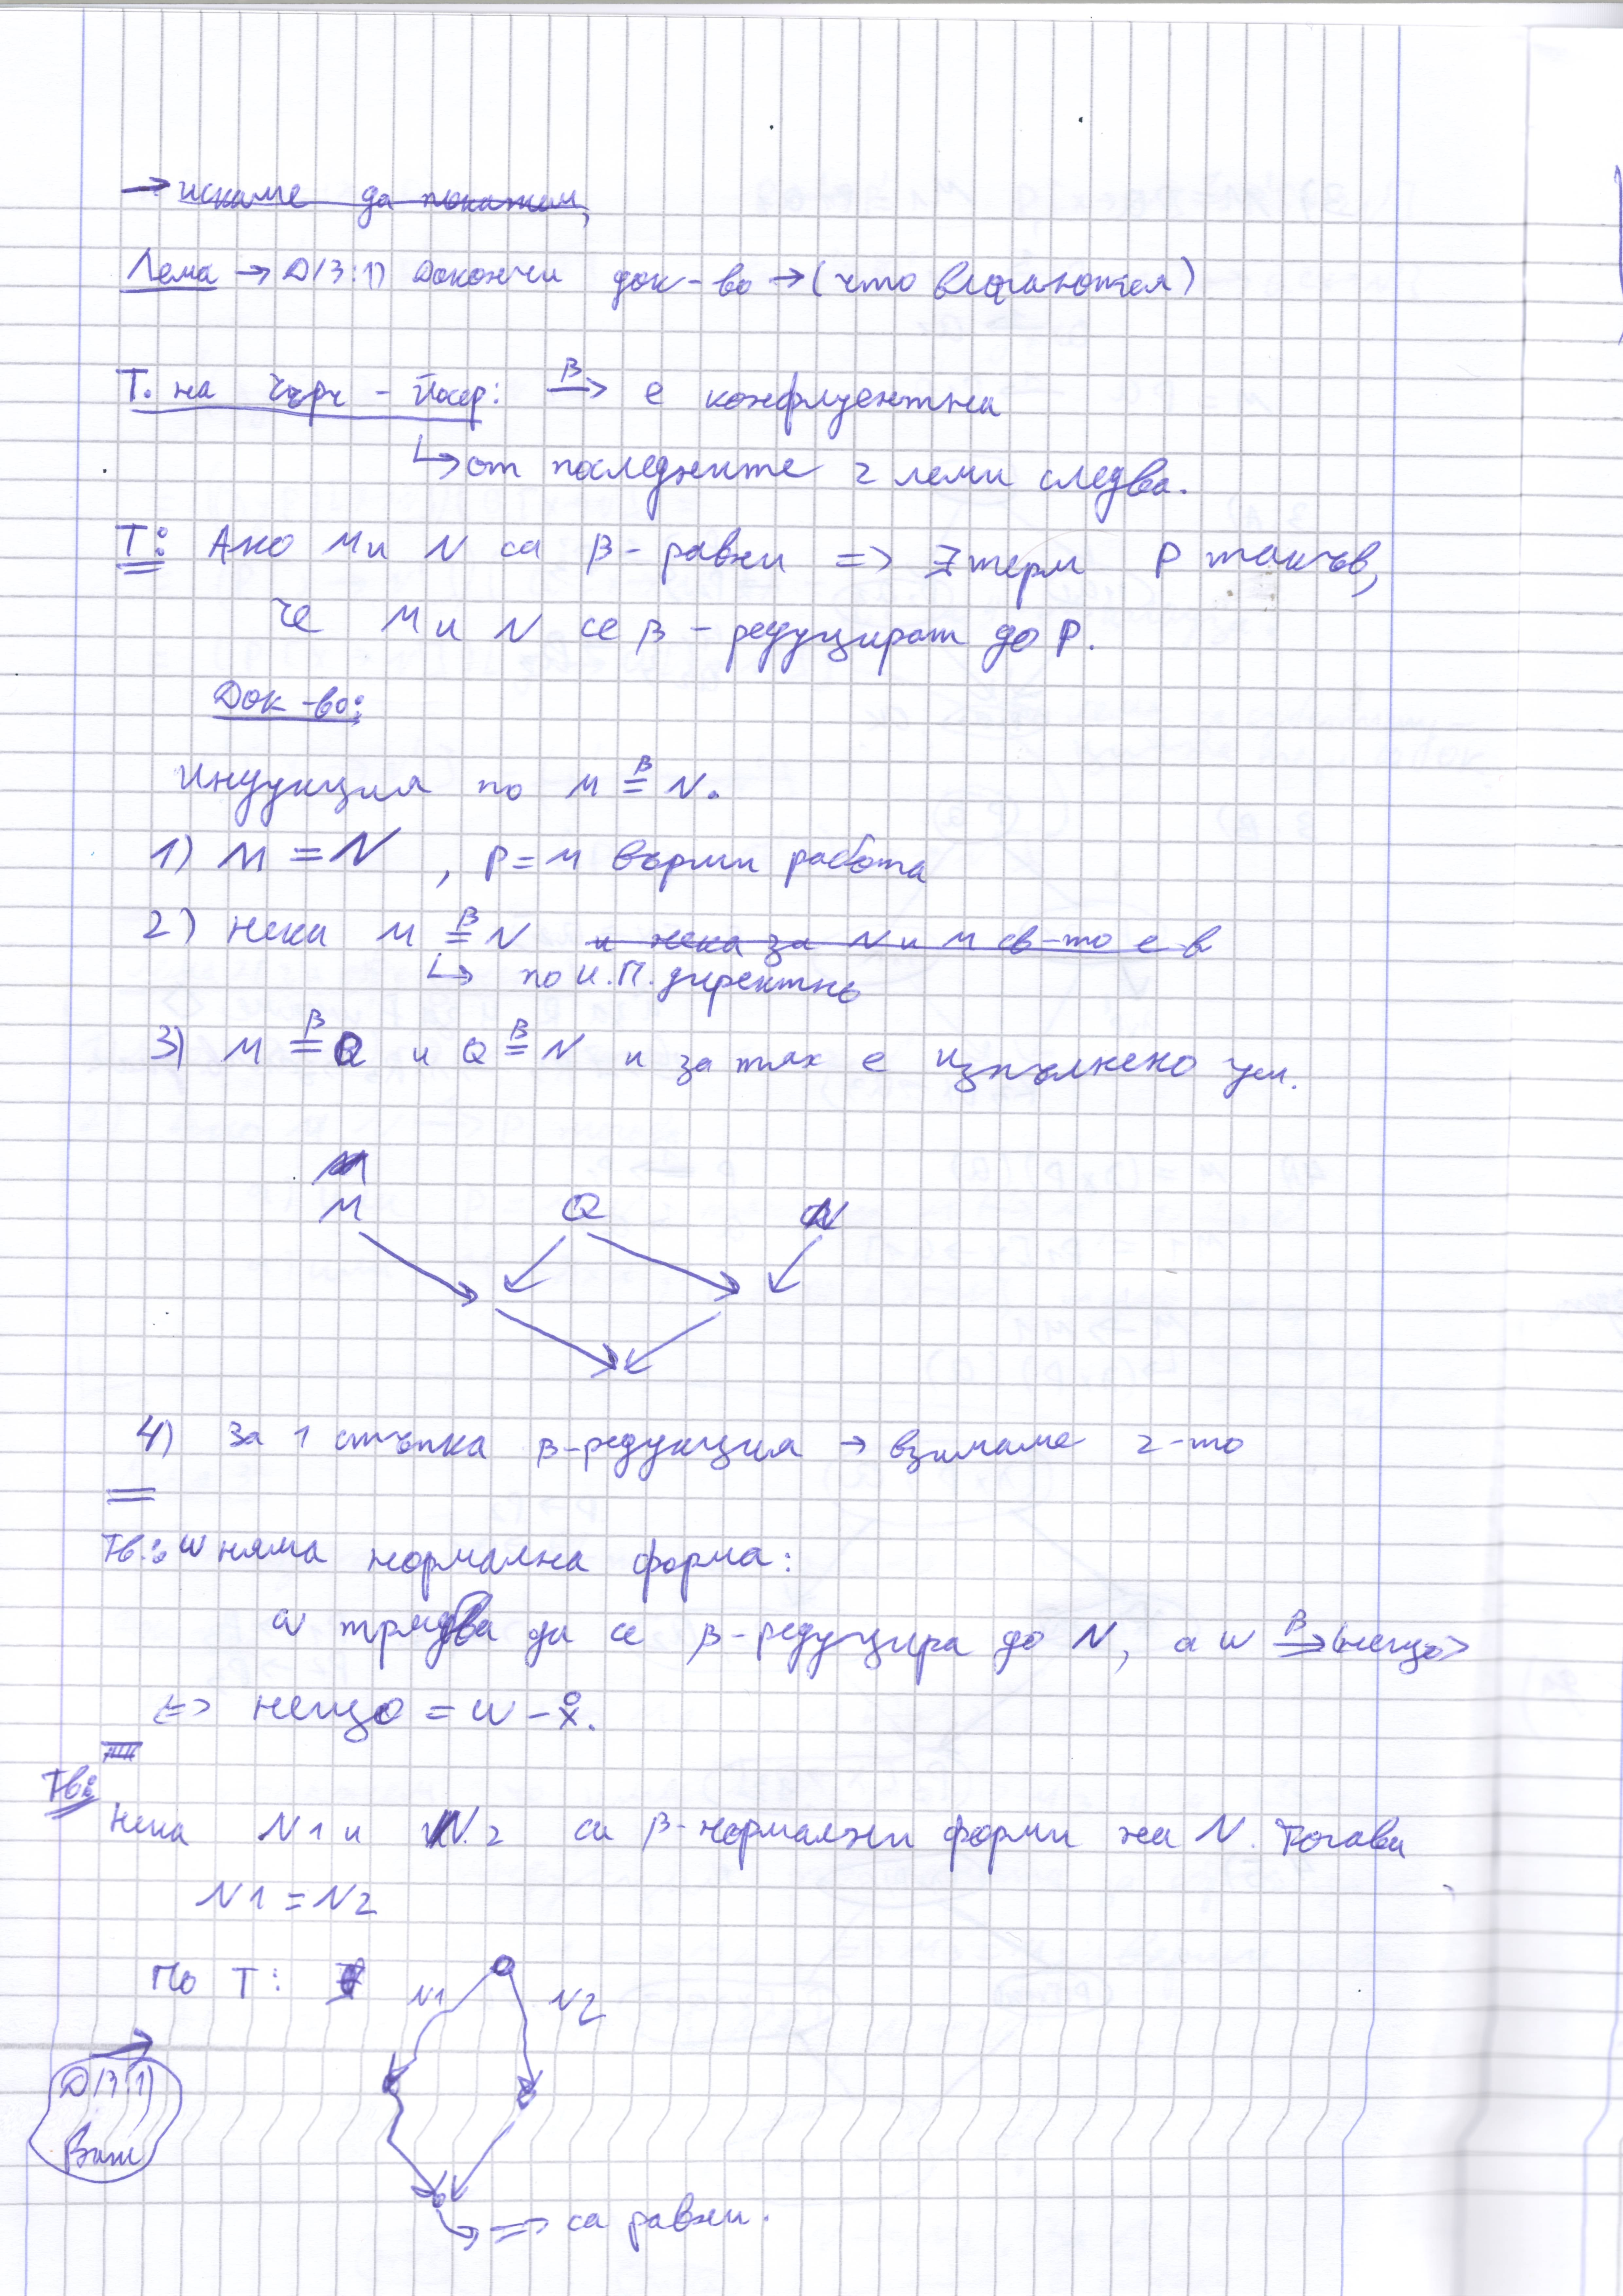 → искаме да покажем,
Лема → Д/З:1) Докончи док-во → (что влагаются)
Т. на Чърч - Росер: β→ е конфлуентна
↳ от последните 2 леми следва.
Т: Ако M и N са β - равни => ∃ терм P такъв,
че M и N се β - редуцират до P.
Док-во:
Индукция по M β= N.
1) M = N , P = M върши работа
2) Нека M β= N и нека за N и M св-то е в
↳ по И.П. директно
3) M β= Q и Q β= N и за тях е изпълнено усл.
M
M Q N
4) За 1 стъпка β-редукция → взимаме 2-то
Тв.: ω няма нормална форма:
ω трябва да се β-редуцира до N, а ω β→> <нещо>
<=> нещо = ω - x.
Тв:
Нека N1 и N2 са β-нормални форми на N. Тогава
N1 = N2
По Т: N1 N2
Д/З 1)
=> са равни.